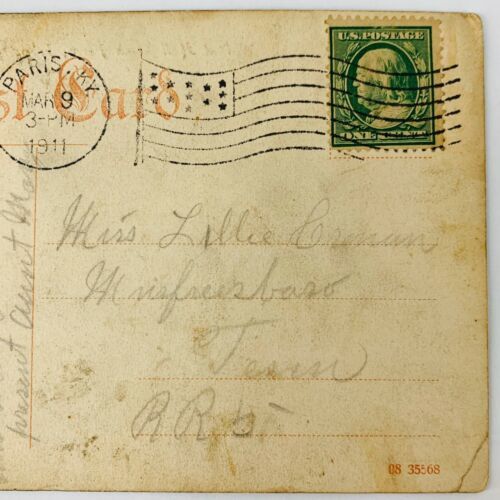 PARIS, KY.
MAR 9
3-PM
1911
U.S. POSTAGE
ONE CENT
st Card
Miss Lillie
Murfreesboro
Tenn
RR 5
present Aunt
08 35568